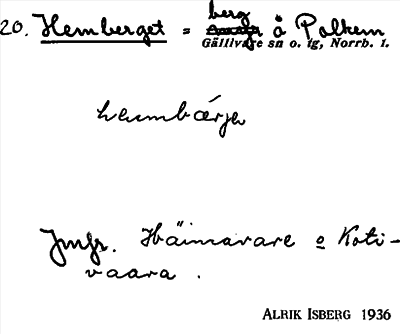 20. Hemberget = berg å Polkem
Gällivare sn o. tg, Norrb. l.
hembærje
Jmfr. Häimavare o Koti-
vaara.
ALRIK ISBERG 1936